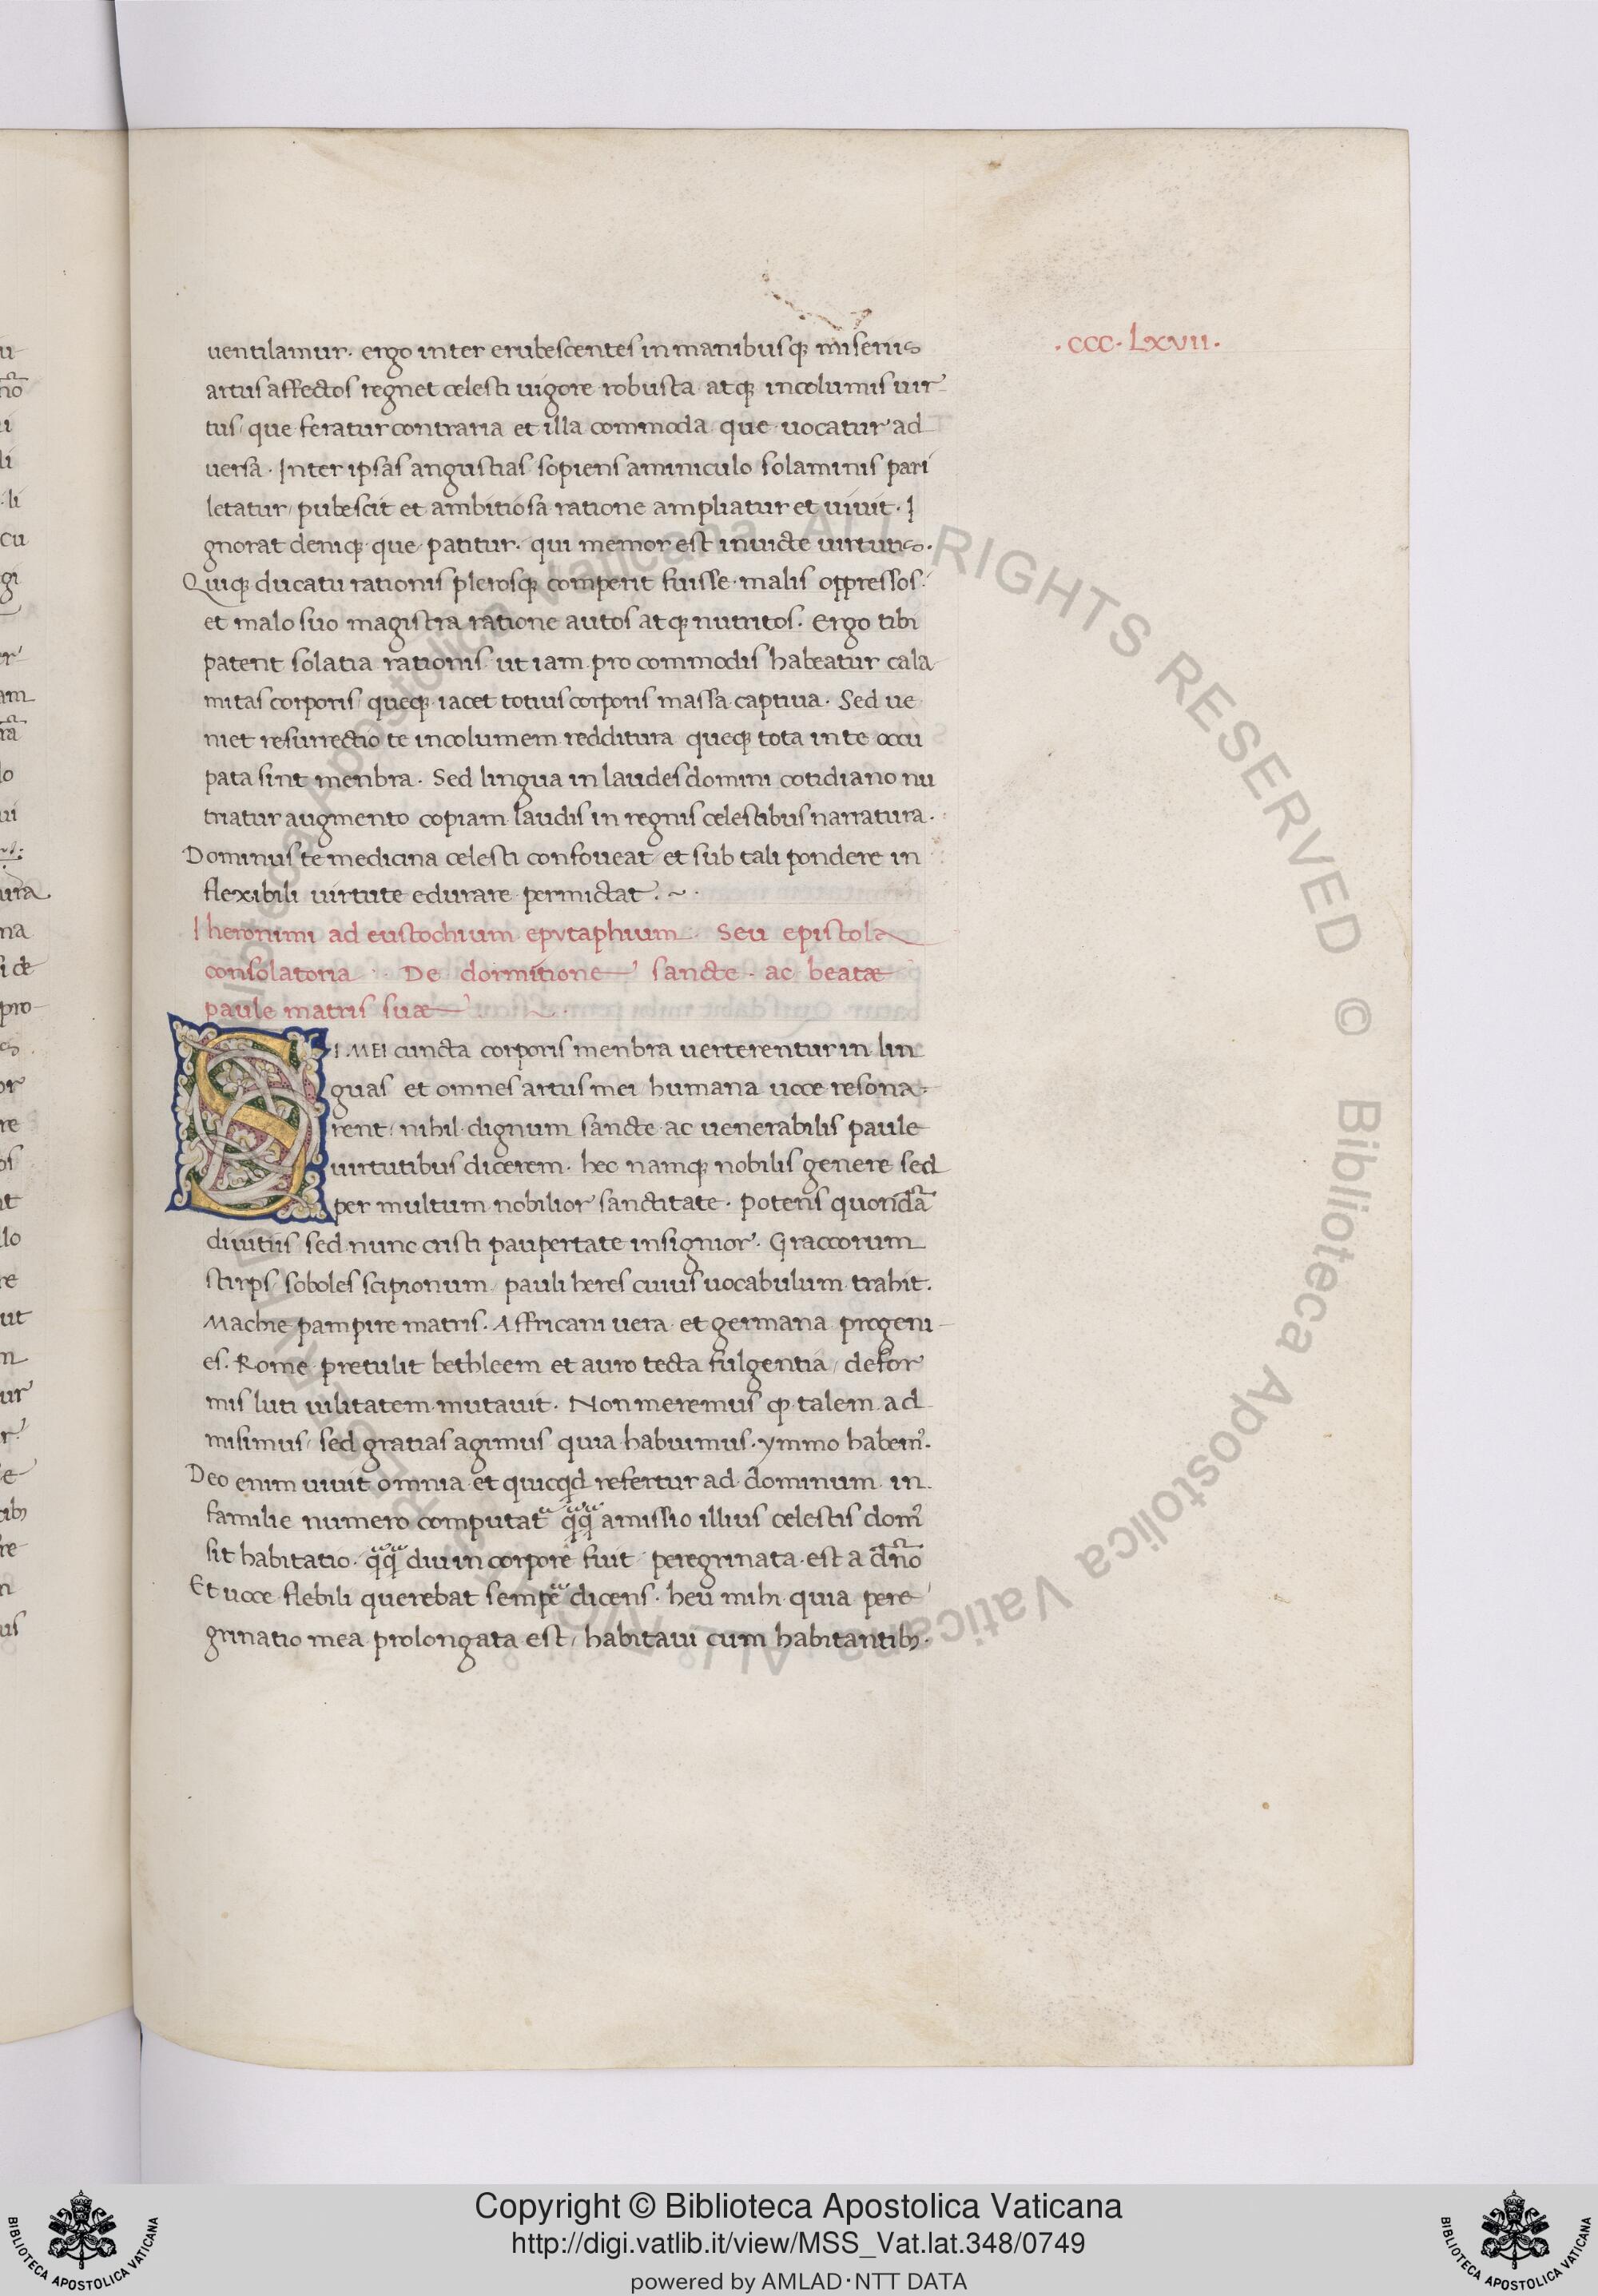 .ccc.Lxvii.
uentilamur. ergo inter erubescentes in manibusq; miseriis
artus affectos regnet celesti uigore robusta atq; incolumis uir
tus, que feratur contraria et illa commoda que uocatur ad
uersa. Inter ipsas angustias sopiens aminiculo solaminis pari
letatur, pubescit et ambitiosa ratione ampliatur et uiuit. I
gnorat deniq; que patitur. qui memor est inuicte uirtutis.
Quiq; ducatu rationis plerosq; comperit fuisse malis oppressos.
et malo suo magistra ratione autos atq; nutritos. Ergo tibi
patent solatia rationis ut iam pro commodis habeatur cala
mitas corporis queq; iacet totius corporis massa captiua. Sed ue
niet resurrectio te incolumem redditura queq; tota in te occu
pata sint menbra. Sed lingua in laudes domini cotidiano nu
triatur augmento copiam laudis in regnis celestibus narratura.
Dominus te medicina celesti confoueat et sub tali pondere in
flexibili uirtute edurare permictat. ~ .
Iheronimi ad eustochium epytaphium. Seu epistola
consolatoria. De dormitione sancte. ac beatæ
paule matris suæ
SI MEI cuncta corporis menbra uerterentur in lin
guas et omnes artus mei humana uoce resona.
rent, nihil dignum sancte ac uenerabilis paule
uirtutibus dicerem. hec namq; nobilis genere sed
per multum nobilior sanctitate. potens quondã
diuitiis sed nunc cristi paupertate insignior. Graccorum
stirps, soboles scipionum, pauli heres cuius uocabulum trahit.
Machie pampire matris. Affricani uera et germana progeni
es. Rome pretulit bethleem et auro tecta fulgentia, defor
mis luti uilitatem mutauit. Non meremus ꝙ talem ad
misimus, sed gratias agimus quia habuimus. ymmo habemꝰ.
Deo enim uiuit omnia et quicqd refertur ad dominum in
familie numero computat᷑ qͣqͣ amissio illius celestis domꝰ
sit habitatio. qͣqͣ diu in corpore fuit peregrinata est a dño
Et uoce flebili querebat semꝑ dicens. heu mihi quia pere
grinatio mea prolongata est, habitaui cum habitantibꝫ.
Copyright © Biblioteca Apostolica Vaticana
http://digi.vatlib.it/view/MSS_Vat.lat.348/0749
powered by AMLAD·NTT DATA